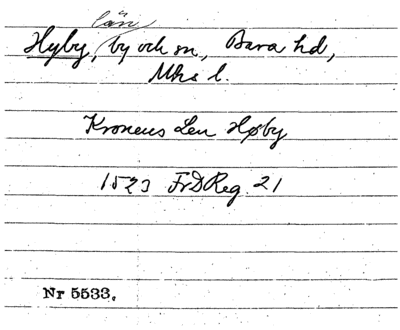 län
Hyby, by och sn, Bara hd,
Mhs l.
Kronens Len Høby
1523 FrDReg. 21
Nr 5533.